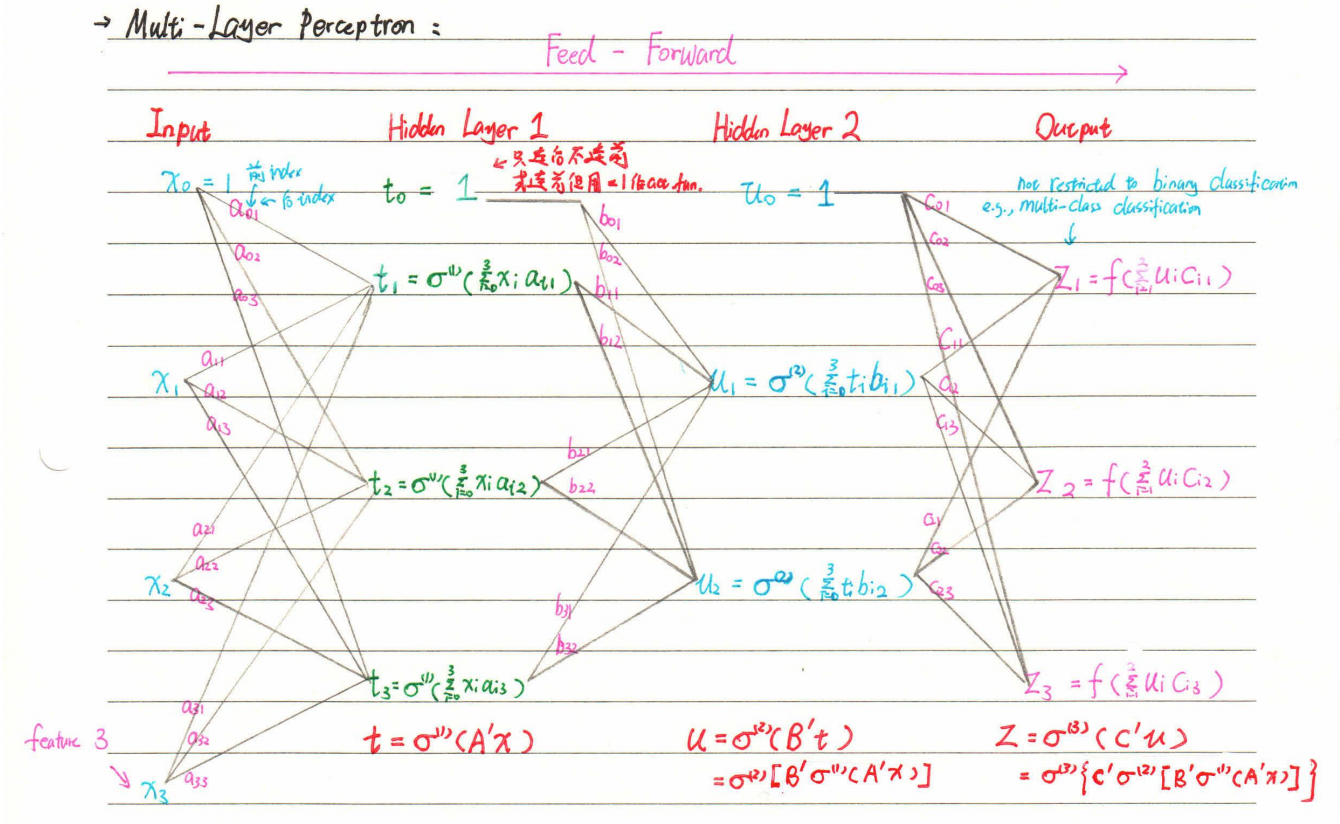 → Multi-Layer Perceptron :
Feed - Forward
Input
Hidden Layer 1
Hidden Layer 2
Output
x₀ = 1
前 index
← 后 index
t₀ = 1
← 只连后不连前
或连前但用 =1 作 act fun.
u₀ = 1
not restricted to binary classification
e.g., multi-class classification
a₀₁
a₀₂
a₀₃
b₀₁
b₀₂
b₁₁
b₁₂
c₀₁
c₀₂
c₀₃
t₁ = σ⁽¹⁾(∑³ᵢ₌₀ xᵢ aᵢ₁)
z₁ = f(∑²ᵢ₌₁ uᵢ cᵢ₁)
a₁₁
a₁₂
a₁₃
x₁
u₁ = σ⁽²⁾(∑³ᵢ₌₀ tᵢ bᵢ₁)
c₁₁
c₁₃
b₂₁
b₂₂
t₂ = σ⁽¹⁾(∑³ᵢ₌₀ xᵢ aᵢ₂)
z₂ = f(∑²ᵢ₌₁ uᵢ cᵢ₂)
a₂₁
a₂₂
a₂₃
x₂
u₂ = σ⁽²⁾(∑³ᵢ₌₀ tᵢ bᵢ₂)
c₂₃
b₃₁
b₃₂
t₃ = σ⁽¹⁾(∑³ᵢ₌₀ xᵢ aᵢ₃)
z₃ = f(∑²ᵢ₌₁ uᵢ cᵢ₃)
a₃₁
a₃₂
a₃₃
feature 3
x₃
t = σ⁽¹⁾(A'x)
u = σ⁽²⁾(B't)
= σ⁽²⁾[B'σ⁽¹⁾(A'x)]
z = σ⁽³⁾(C'u)
= σ⁽³⁾{C'σ⁽²⁾[B'σ⁽¹⁾(A'x)]}